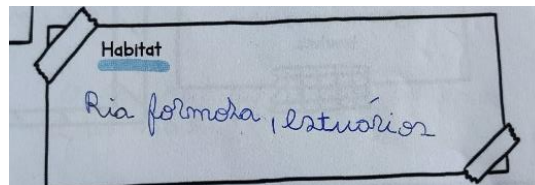 Habitat
Ria formosa, estuários